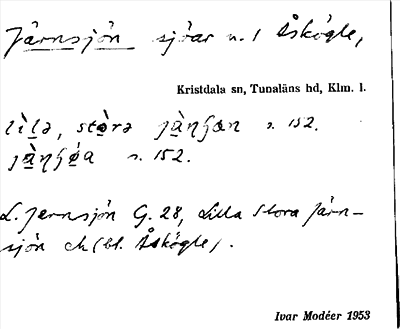 Järnsjön sjöar n. / Åskögle,
Kristdala sn, Tunaläns hd, Klm. l.
lìlə, stòrə jànʃøn s. 152.
jànʃøa s. 152.
L. Jernsjön G. 28, Lilla Stora Järn-
sjön ek (bl. Åskögle).
Ivar Modéer 1953